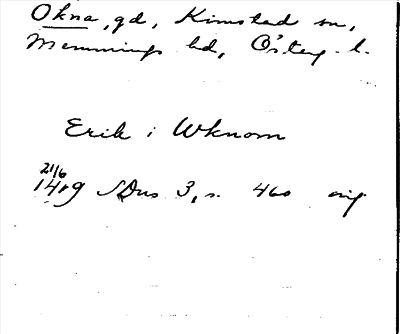 Okna, gd, Kimstad sn,
Memmings hd, Österg. l.
Erik i Wknom
21/6
1419 SDns 3, s. 460 orig